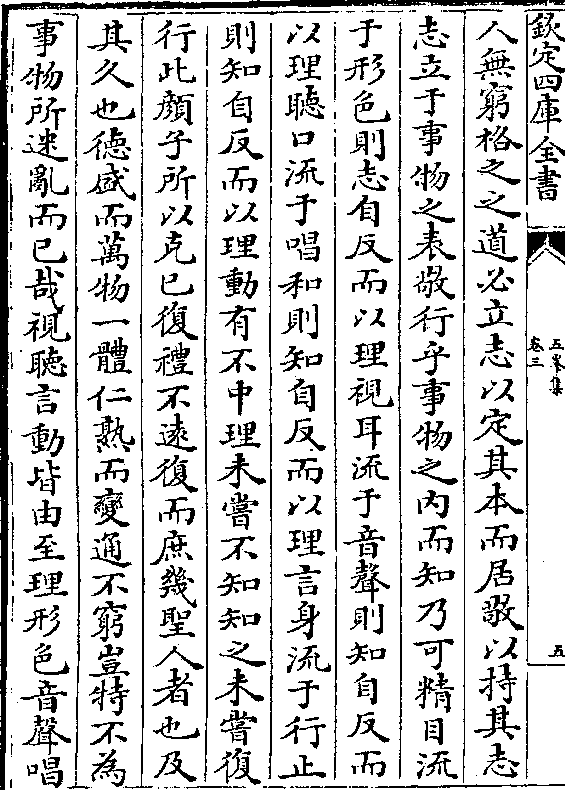 欽定四庫全書
五峯集
卷三
五
人無窮格之之道必立志以定其本而居敬以持其志
志立于事物之表敬行乎事物之内而知乃可精目流
于形色則志自反而以理視耳流于音聲則知自反而
以理聽口流于唱和則知自反而以理言身流于行止
則知自反而以理動有不中理未嘗不知知之未嘗復
行此顔子所以克已復禮不逺復而庶幾聖人者也及
其久也德盛而萬物一體仁熟而變通不窮豈特不為
事物所迷亂而已哉視聽言動皆由至理形色音聲唱